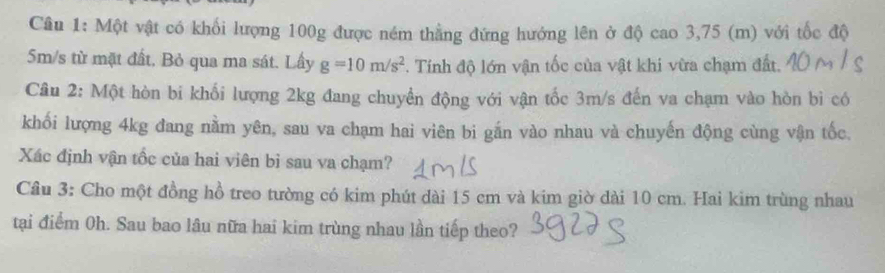 Câu 1: Một vật có khối lượng 100g được ném thẳng đứng hướng lên ở độ cao 3,75 (m) với tốc độ
5m/s từ mặt đất. Bỏ qua ma sát. Lấy g =10 m/s². Tính độ lớn vận tốc của vật khi vừa chạm đất. 10 m/s
Câu 2: Một hòn bi khối lượng 2kg đang chuyển động với vận tốc 3m/s đến va chạm vào hòn bi có
khối lượng 4kg đang nằm yên, sau va chạm hai viên bi gắn vào nhau và chuyển động cùng vận tốc.
Xác định vận tốc của hai viên bi sau va chạm? 1m/s
Câu 3: Cho một đồng hồ treo tường có kim phút dài 15 cm và kim giờ dài 10 cm. Hai kim trùng nhau
tại điểm 0h. Sau bao lâu nữa hai kim trùng nhau lần tiếp theo? 3927s